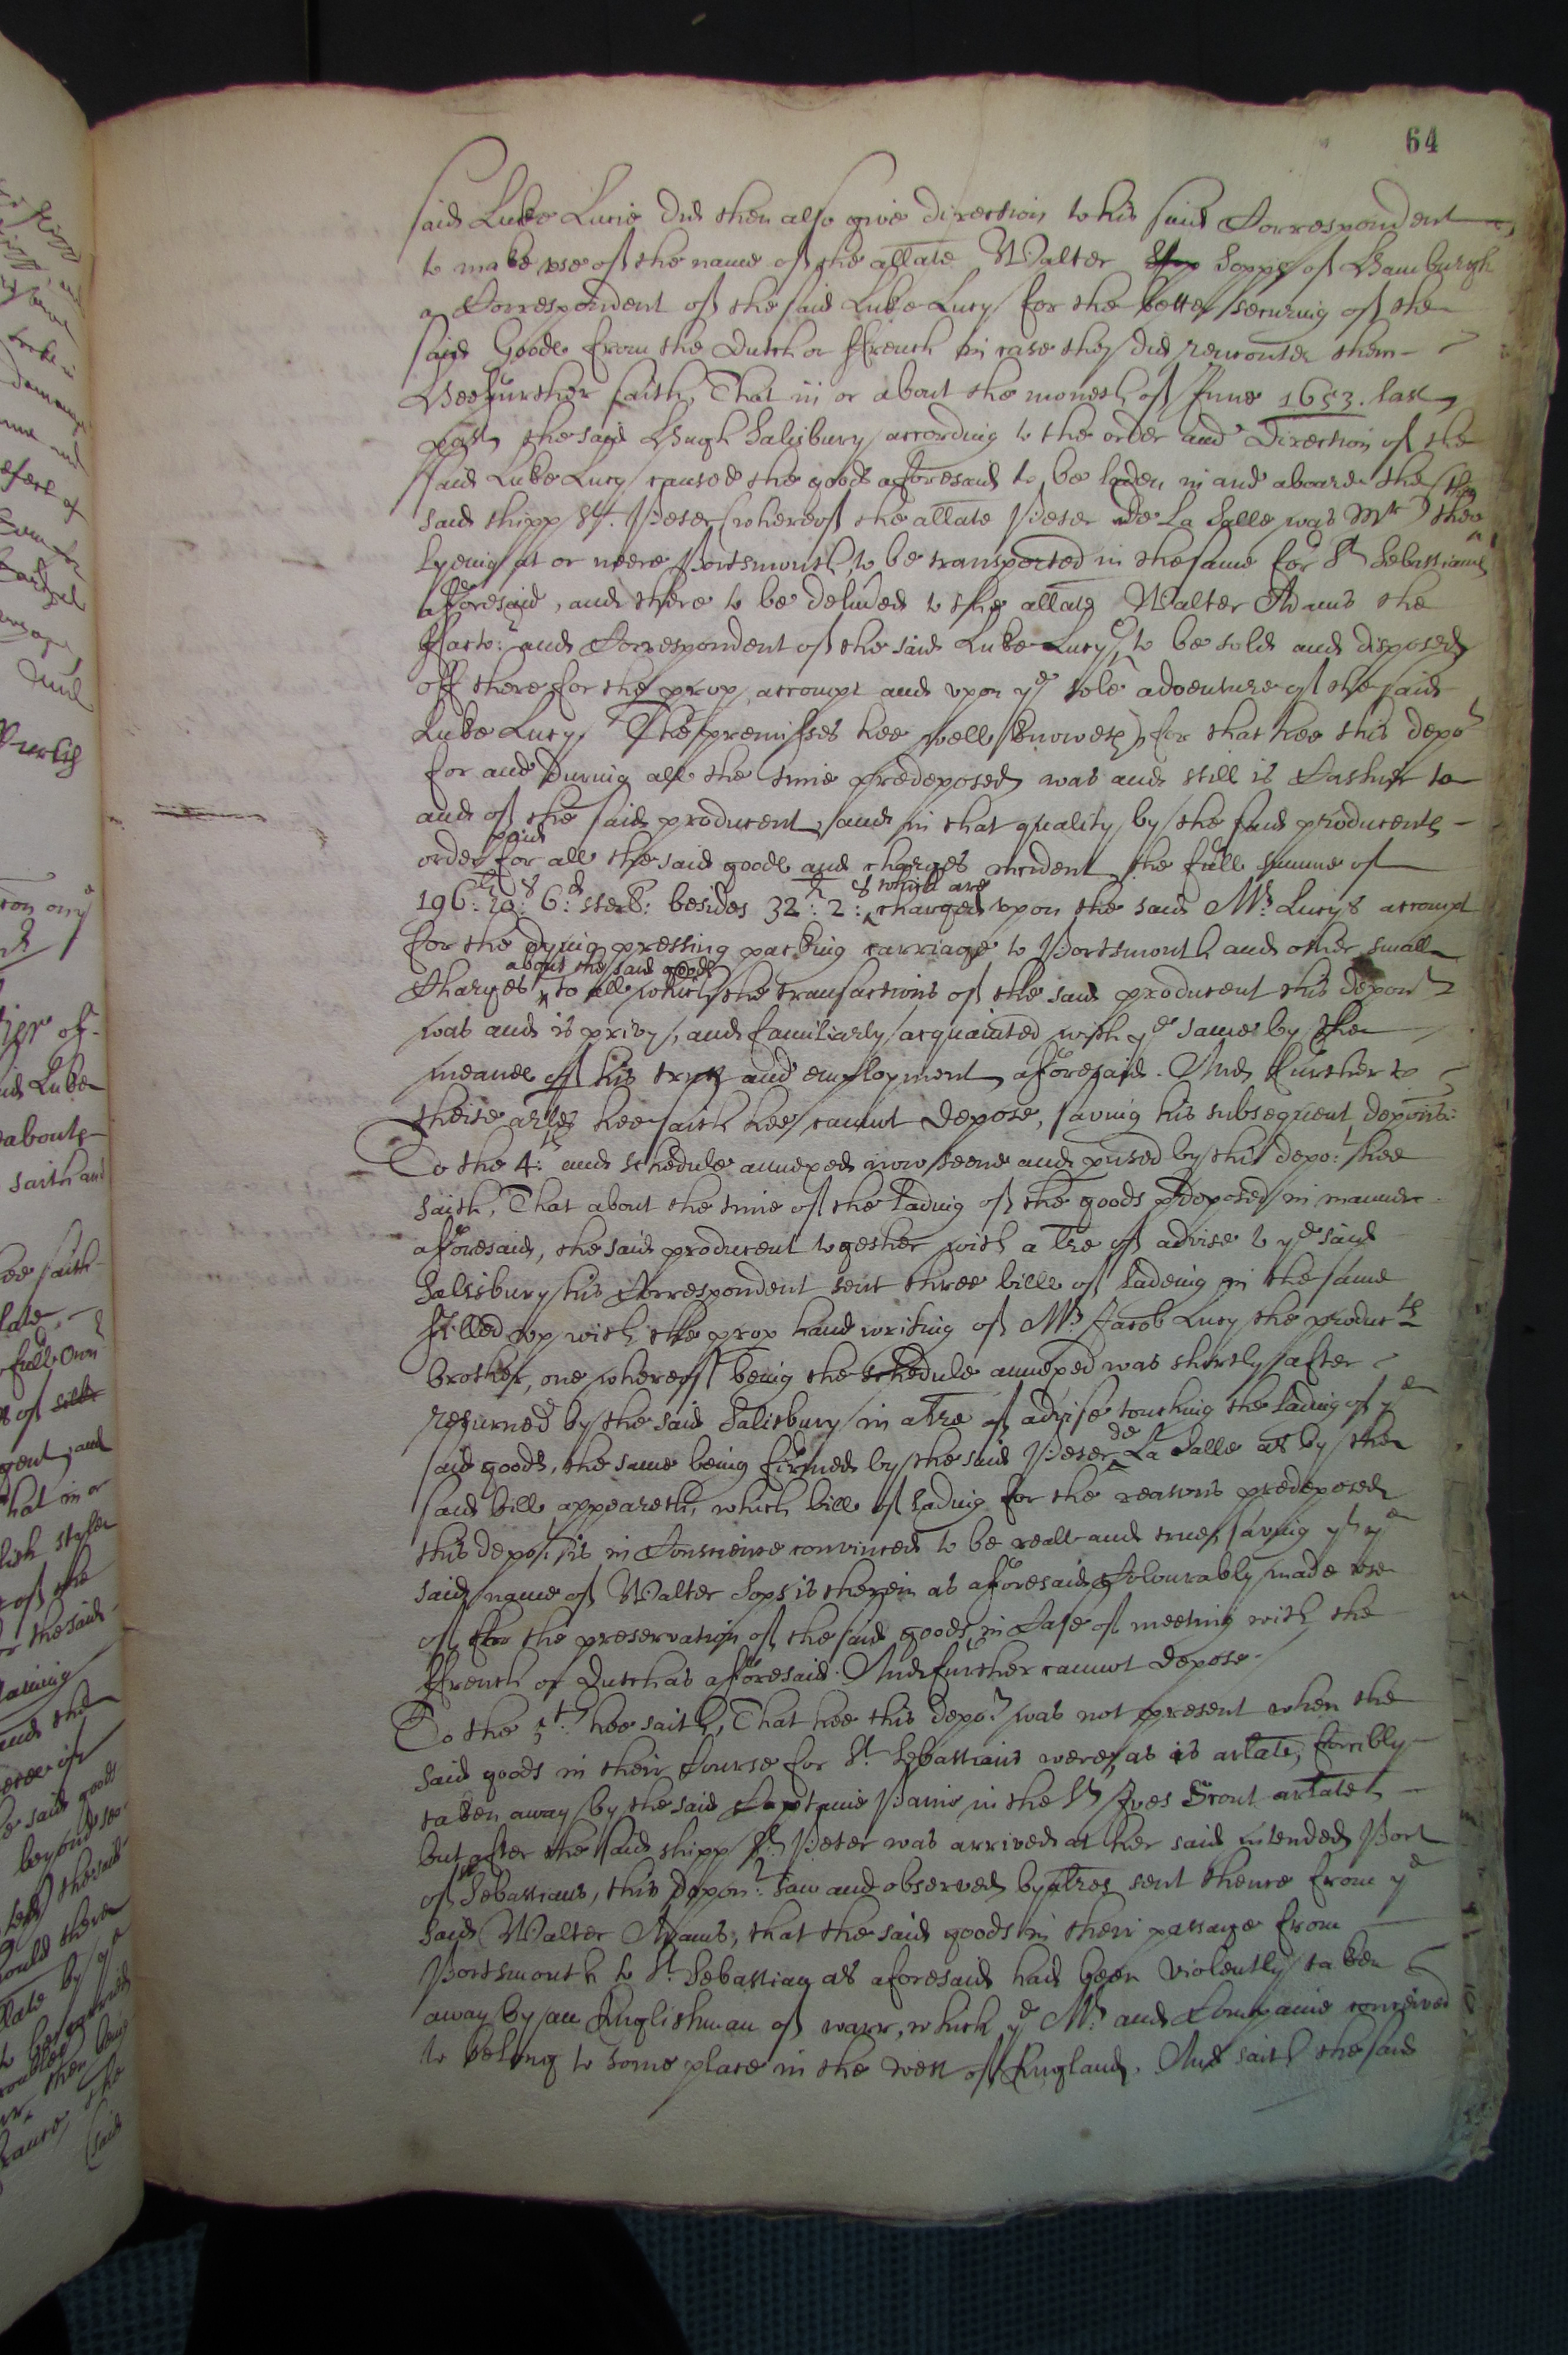 64
said Luke Lucie did then also give direction to his said Correspondent
to make vse of the name of the allate Walter Sopps of Hamburgh
a Correspondent of the said Luke Lucy for the better securing of the
said Goods from the Dutch or ffrench in case they did rencounter them
Hee further saith, That in or about the moneth of June 1653. last
past the said Hugh Salisbury according to the order and direction of the
said Luke Lucy caused the goods aforesaid to be laden in and aboard the
said shipp St. Peter (whereof the allate Peter de La Salle was Mr) then
lyeing at or neere Portsmouth, to be transported in the same for St Sebastians
aforesaid, and there to be deliued to the allate Walter Adams the
ffactor and Correspondent of the said Luke Lucy, to be sold and disposed
off there for the prop accompt and vpon ye sole adventure of the said
Luke Lucy. The premisses hee well knoweth, for that hee this depot
for and during all the time predeposed was and still is Cashier to
and of the said producent, and in that quality by the said producents
order paid for all the said goods and charges incident the full summe of
196li 19s 6d sterl: besides 32li: 2s which are charged vpon the said Mr. Lucy's accompt
for the dying pressing packing carriage to Portsmouth and other small
Charges about the said goods to all which the transactions of the said producent this depont
was and is privy, and familiarly acquainted with ye same by the
meanes of his trust and employment aforesaid. And further to
theise arles hee saith hee cannot depose, saving his subsequent depons:
To the 4:th and schedule annexed now seene and pused by this depo:t hee
saith, That about the time of the lading of the goods pdeposed in manner
aforesaid, the said producent together with a lre of advise to ye said
Salisbury his Correspondent sent three bills of ladeing in the same
filled vp with the prop hand writing of Mr. Jacob Lucy the products
brother, one whereof being the schedule annexed was shortly after
returned by the said Salisbury in a lre of advise touching the lading of ye
said goods, the same being firmed by the said Peter de La Salle as by the
said bill appeareth, which bill of lading for the reasons predeposed
this depot. is in Conscience convinced to be reall and true, saving yt ye
said name of Walter Sops is therein as aforesaid Colourably made vse
of for the preservation of the said goods in Case of meeting with the
ffrench or Dutch as aforesaid. And further cannot depose.
To the 5th. hee saith, That hee this depot was not present when the
said goods in their Course for St Sebastians were, as is arlate, forcibly
taken away by the said Captaine Paine in the St Ives Scout arlate
but after the said shipp St. Peter was arrived at her said intended Port
of St Sebastians, this depont: saw and observed by lres sent thence from ye
said Walter Adams, that the said goods in their passage from
Portsmouth to St Sebastian as aforesaid had been violently taken
away by an Englishman of warr, which ye Mr. and Companie conceived
to belong to some place in the west of England. And saith the said